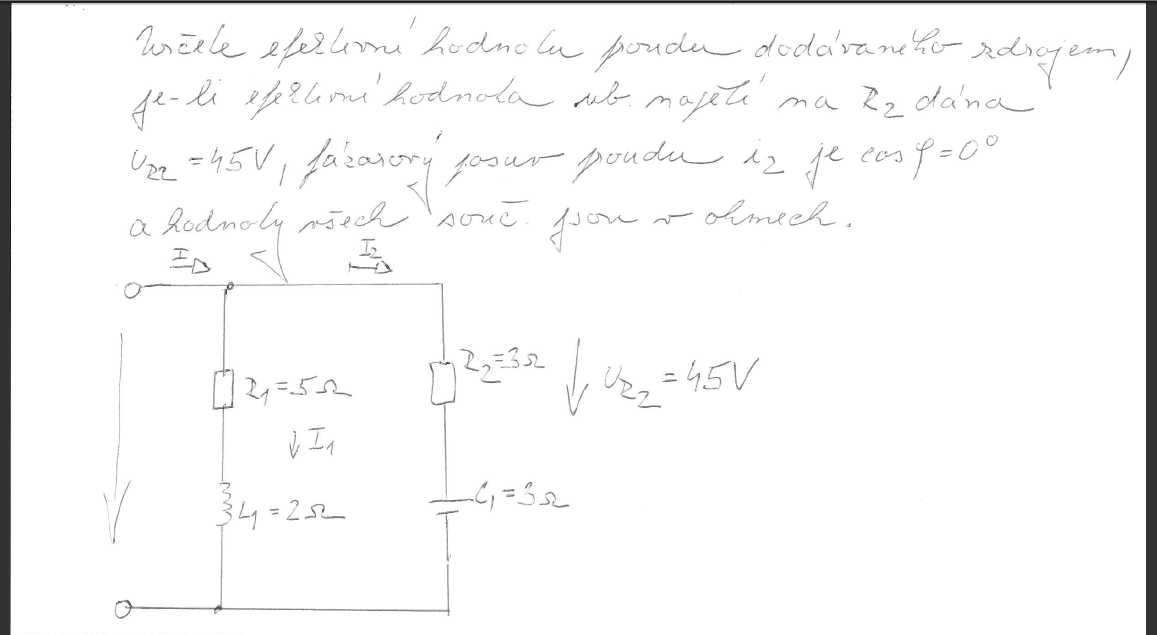 Určete efektivní hodnotu proudu dodávaného zdrojem,
je-li efektivní hodnota úb. napětí na R2 dána
UR2 = 45V, fázorový posuv proudu i2 je cos φ = 0°
a hodnoty všech souč. jsou v ohmech.
I I2
R2=3Ω
UR2 = 45V
R1=5Ω
I1
C1=3Ω
L1=2Ω